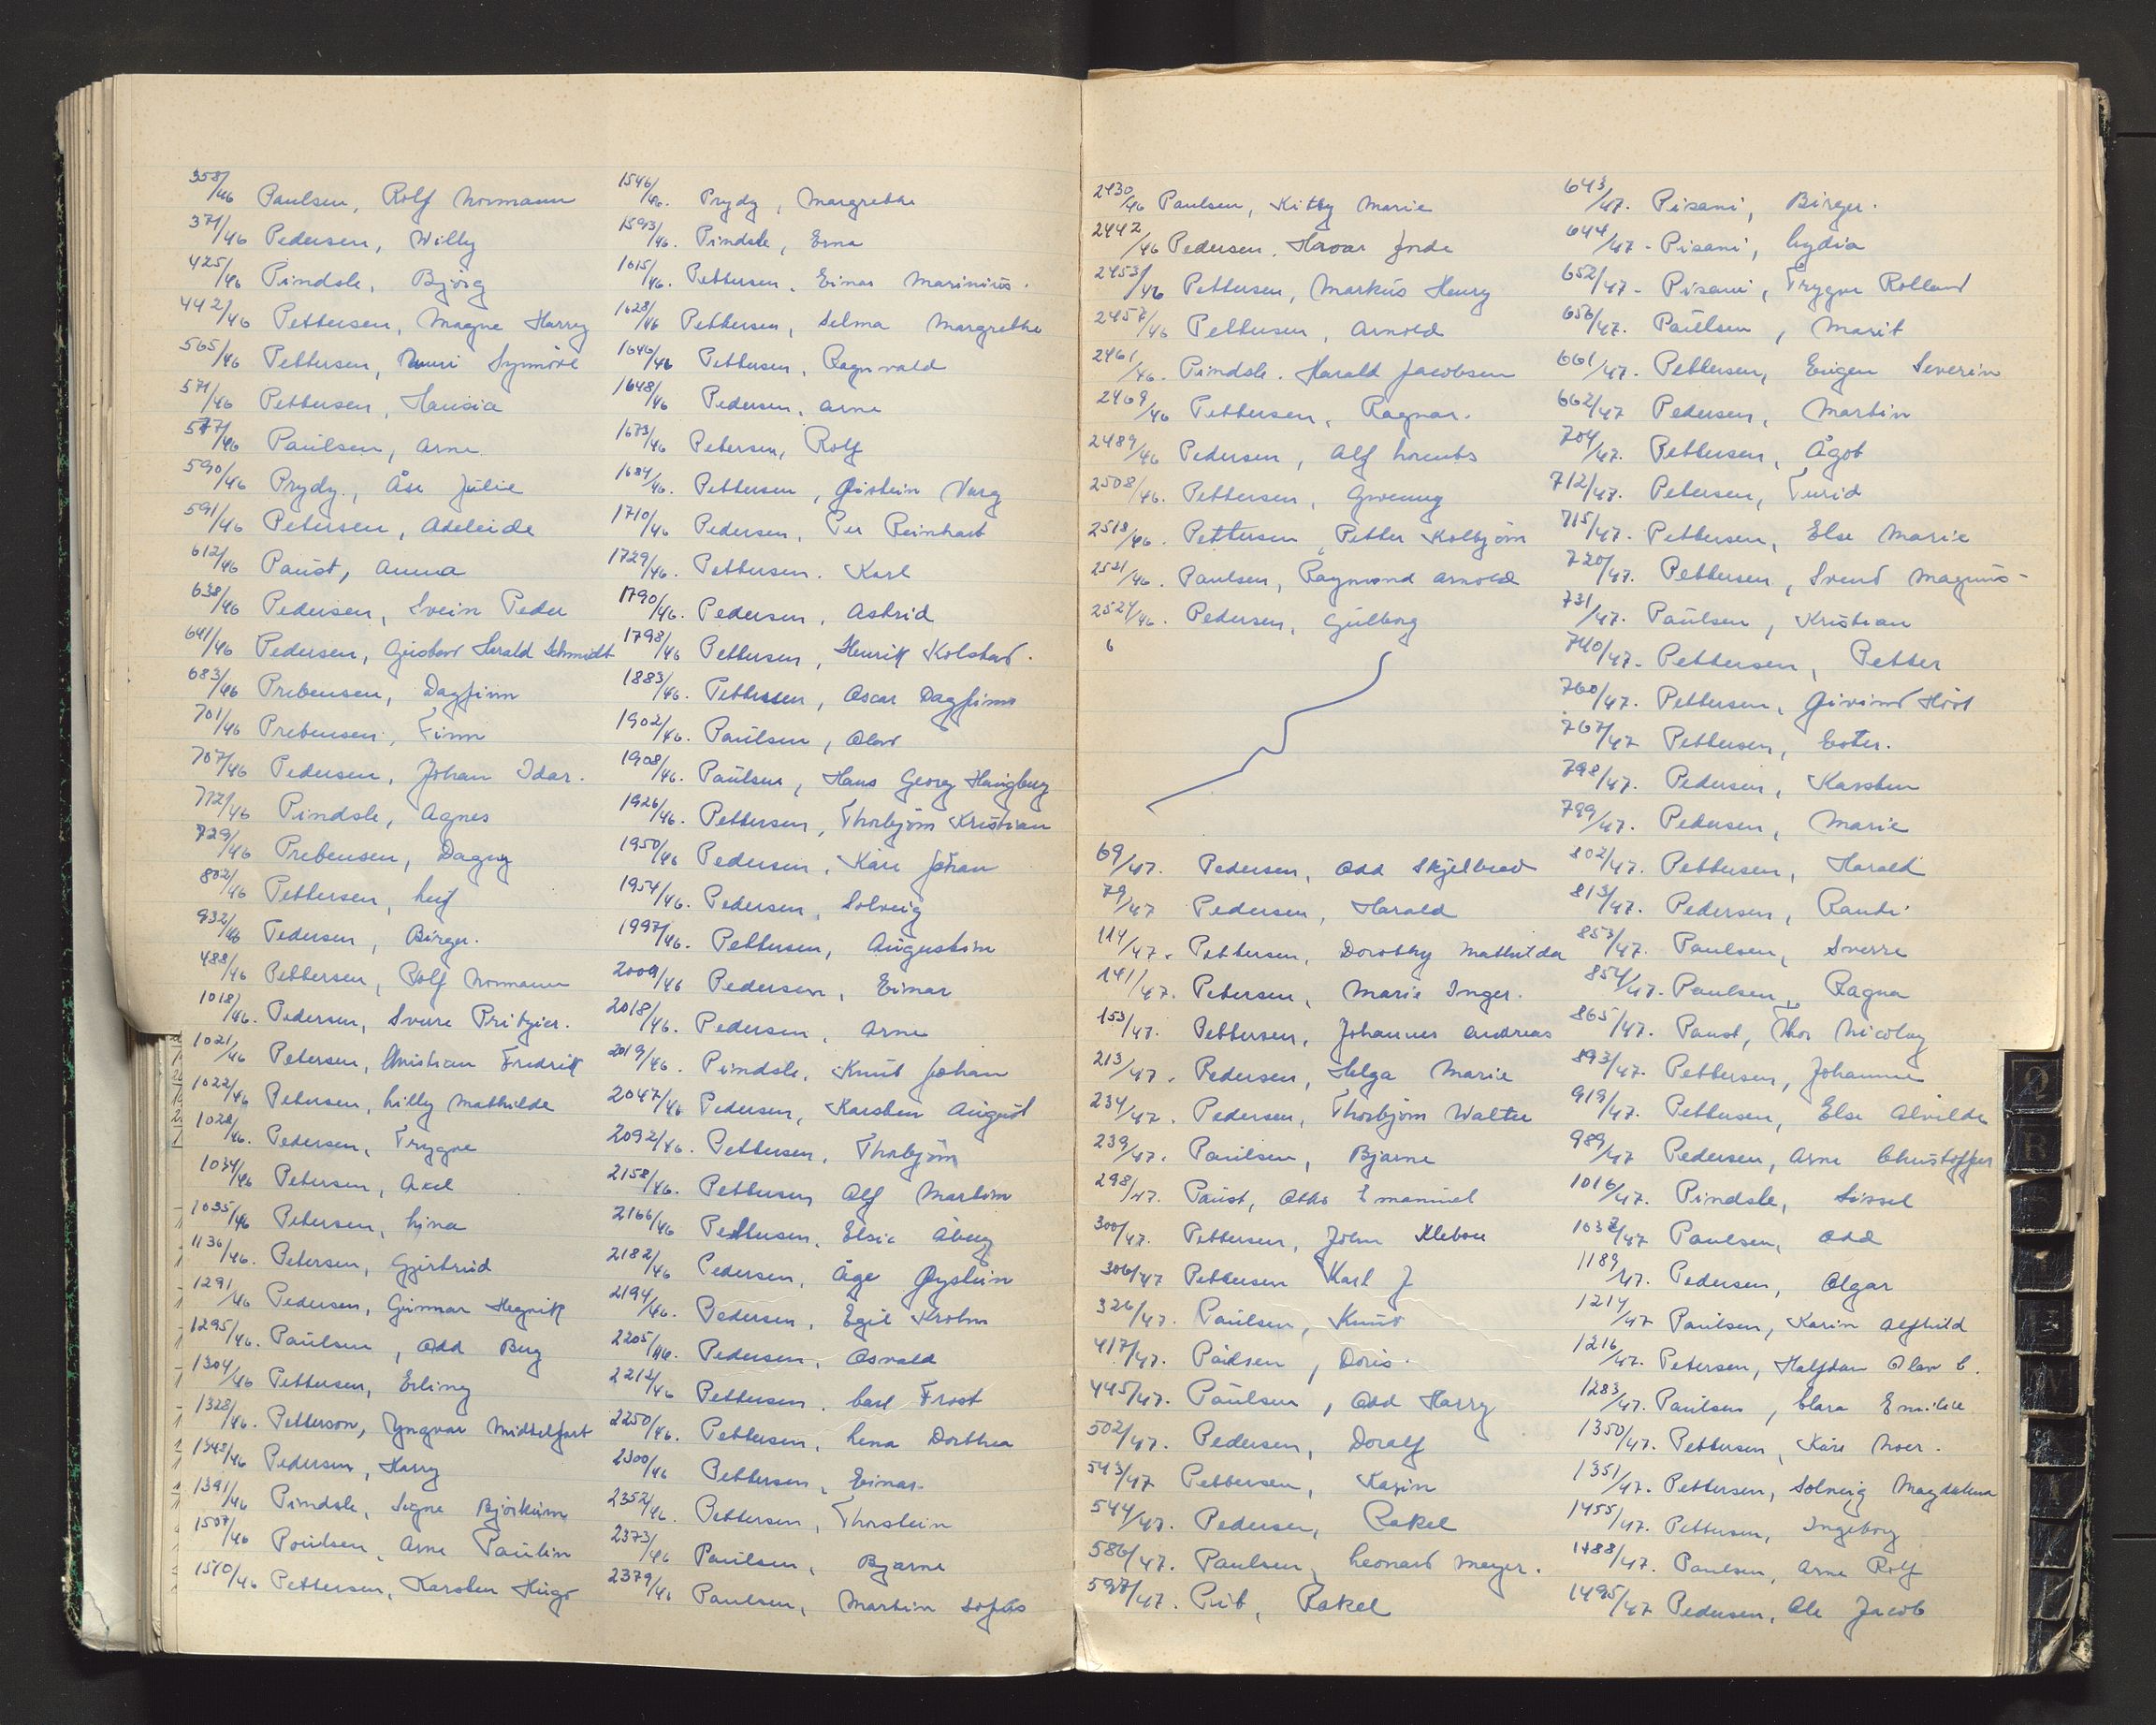 358/46 Paulsen, Rolf Normann
371/46 Pedersen, Willy
425/46 Pindsle, Bjørg
442/46 Pettersen, Magne Harry
565/46 Pettersen, Synnöve
571/46 Pettersen, Hansia
577/46 Paulsen, Arne
590/46 Prydz, Åse Julie
591/46 Petersen, Adeleide
612/46 Paust, Anna
638/46 Pedersen, Svein Peder
641/46 Pedersen, Gustav Harald Schmidt
683/46 Prebensen, Dagfinn
701/46 Prebensen, Finn
707/46 Pedersen, Johan Idar.
712/46 Pindsle, Agnes
729/46 Prebensen, Dagny
802/46 Pettersen, Leif
932/46 Pedersen, Birger.
488/46 Pettersen, Rolf Normann
1018/46. Pedersen, Sverre Pritzier.
1021/46 Petersen, Christian Fredrik
1022/46 Petersen, Lilly Mathilde
1028/46. Pedersen, Trygve
1034/46 Petersen, Axel
1035/46 Petersen, Lina
1136/46. Petersen, Gjertrud
1291/46 Pedersen, Gunnar Hegnik
1295/46. Paulsen, Odd Berg
1304/46 Pettersen, Erling
1328/46. Petterson, Yngvar Middelfart
1345/46 Pedersen, Harry
1391/46 Pindsle, Signe Bjørkum
1507/46 Poulsen, Arne Paulin
1510/46 Pettersen, Karsten Hugo
1546/46. Prydz, Margrethe
1593/46. Pindsle, Erna
1615/46. Pettersen, Einar Marinius.
1628/46 Pettersen, Selma Margrethe
1646/46 Pettersen, Ragnvald
1648/46 Pedersen, Arne
1673/46 Petersen, Rolf
1684/46. Pettersen, Øistein Varg
1710/46 Pedersen, Per Reinhart
1729/46. Pettersen. Karl
1790/46. Pedersen, Astrid
1798/46 Pettersen, Henrik Kolstad.
1883/46. Pettersen, Oscar Dagfinn
1902/46. Paulsen, Olav
1908/46. Paulsen, Hans Georg Haugberg
1926/46. Pettersen, Thorbjørn Kristian
1950/46 Pedersen, Kåre Johan
1954/46. Pedersen, Solveig
1997/46. Pettersen, Augustin
2009/46 Pedersen, Einar
2018/46. Pedersen, Arne
2019/46. Pindsle, Knut Johan
2047/46 Pedersen, Karsten August
2092/46. Pettersen, Thorbjørn
2158/46. Pettersen Alf Martin
2166/46 Pettersen, Elsie Åberg
2182/46 Pedersen, Åge Øystein
2194/46. Pedersen, Egil Krohn
2205/46. Pedersen, Osvald
2212/46 Pettersen, Carl Frost
2250/46. Pettersen, Lena Dorthea
2300/46 Pettersen, Einar.
2352/46. Pettersen, Thorstein
2373/46 Paulsen, Bjarne
2379/46 Paulsen, Martin Sofus
2430/46 Paulsen, Kitty Marie
2442/46 Pedersen. Havar Jnde
2453/46 Pettersen, Markus Henry
2457/46 Pettersen, Arnold
2461/46. Pindsle. Harald Jacobsen
2469/46 Pettersen, Ragnar.
2489/46 Pedersen, Alf Lorents
2508/46. Pettersen, Gwenny
2518/46. Pettersen, Petter Kolbjørn
2521/46. Paulsen, Raymond Arnold
2524/46. Pedersen, Gulborg
6
69/47. Pedersen, Odd Skjelbred
79/47 Pedersen, Harald
114/47. Pettersen, Dorothy Mathilda
141/47. Petersen, Marie Inger.
153/47. Pettersen, Johannes Andreas
213/47. Pedersen, Helga Marie
234/47. Pedersen, Thorbjørn Walter
239/47. Paulsen, Bjarne
298/47. Paust, Otto Emanuel
300/47. Pettersen, John Klebou
306/47 Pettersen Karl J
326/47. Paulsen, Knut
417/47. Paulsen, Doris.
445/47. Paulsen, Odd Harry
502/47. Pedersen, Doralf
543/47 Pettersen, Karin
544/47. Pedersen, Rakel
586/47. Paulsen, Leonard Meyer.
597/47. Prib, Rakel
643/47. Pisani, Birger.
644/47. Pisani, Lydia
652/47. Pisani, Trygve Rolland
656/47. Paulsen, Marit
661/47. Pettersen, Eugen Severin
662/47 Pedersen, Martin
704/47. Pettersen, Ågot
712/47. Petersen, Turid
715/47. Pettersen, Else Marie
720/47. Pettersen, Svend Magnus
731/47. Paulsen, Kristian
740/47. Pettersen, Petter
760/47. Pettersen, Øivind Høst
767/47 Pettersen, Ester.
798/47. Pedersen, Karsten
799/47. Pedersen, Marie
802/47. Pettersen, Harald
813/47. Pedersen, Randi
853/47. Paulsen, Sverre
854/47. Paulsen, Ragna
865/47. Paust, Thor Nicolay
893/47. Pettersen, Johanne
919/47. Pettersen, Else Alvilde
989/47 Pedersen, Arne Christoffer
1016/47. Pindsle, Sissel
1037/47 Paulsen, Odd
1189/47. Pedersen, Olgar
1214/47 Paulsen, Karin Alfhild
1216/47. Petersen, Halfdan Olav C.
1283/47. Paulsen, Clara Emilie
1350/47. Pettersen, Kåre Noer.
1351/47. Pettersen, Solveig Magdalena
1455/47. Pettersen, Ingeborg
1488/47. Paulsen, Arne Rolf
1495/47 Pedersen, Ole Jacob
Q
R